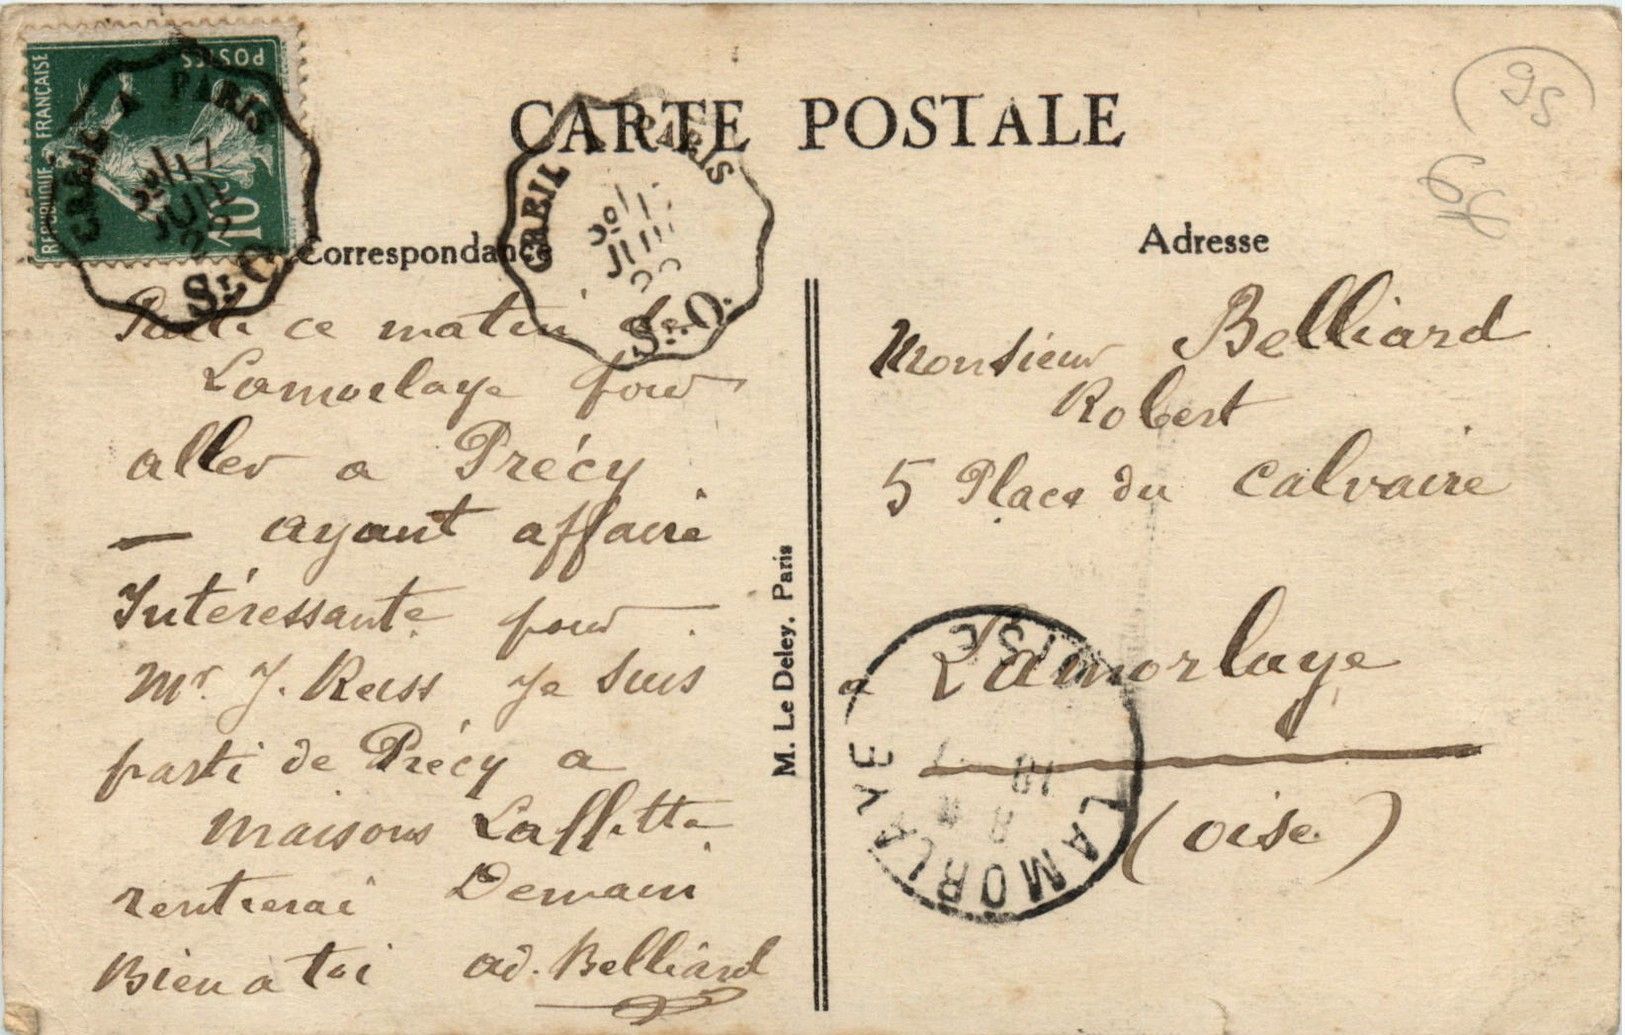 CARTE POSTALE
REPUBLIQUE FRANÇAISE
POSTES
10c
CREIL A PARIS
17
JUIL
22
Sr. O.
CREIL PARIS
JUIL
Sr. O.
95
Correspondance
Adresse
Parti ce matin de
Lamorlaye pour
aller a Précy
— ayant affaire
Intéressante pour
Mr. J. Reiss je suis
parti de Précy a
maisons Laffitte
rentrerai Demain
Bien a toi ad. Belliard
M. Le Deley, Paris
Monsieur Belliard
Robert
5 Place du Calvaire
Lamorlaye
(oise)
LAMORLAYE
OISE
18